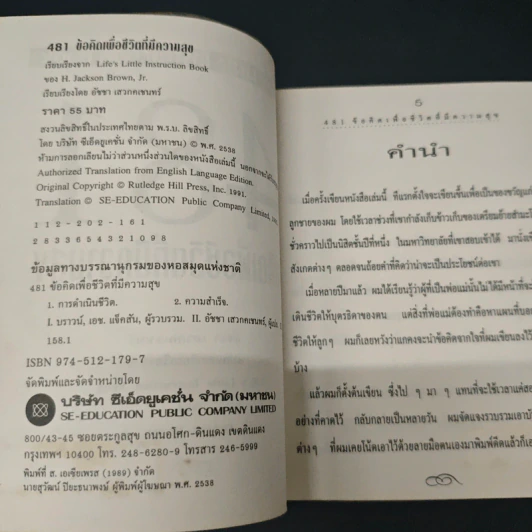 481 ข้อคิดเพื่อชีวิตที่มีความสุข
เรียบเรียงจาก Life's Little Instruction Book
ของ H. Jackson Brown, Jr.
เรียบเรียงโดย อัชชา เสวกคเชนทร์
ราคา 55 บาท
สงวนลิขสิทธิ์ในประเทศไทยตาม พ.ร.บ. ลิขสิทธิ์
โดย บริษัท ซีเอ็ดยูเคชั่น จำกัด (มหาชน) © พ.ศ. 2538
ห้ามการลอกเลียนไม่ว่าส่วนหนึ่งส่วนใดของหนังสือเล่มนี้ นอกจาก
Authorized Translation from English Language Edition.
Original Copyright © Rutledge Hill Press, Inc. 1991.
Translation © SE-EDUCATION Public Company Limited,
112-202-161
2833654321098
ข้อมูลทางบรรณานุกรมของหอสมุดแห่งชาติ
481 ข้อคิดเพื่อชีวิตที่มีความสุข
1. การดำเนินชีวิต. 2. ความสำเร็จ.
I. บราวน์, เอช. แจ็คสัน, ผู้รวบรวม. II. อัชชา เสวกคเชนทร์,
158.1
ISBN 974-512-179-7
จัดพิมพ์และจัดจำหน่ายโดย
บริษัท ซีเอ็ดยูเคชั่น จำกัด (มหาชน)
SE-EDUCATION PUBLIC COMPANY LIMITED
800/43-45 ซอยตระกูลสุข ถนนอโศก-ดินแดง เขตดินแดง
กรุงเทพฯ 10400 โทร. 248-6280-9 โทรสาร 246-5999
พิมพ์ที่ ส. เอเชียเพรส (1989) จำกัด
นายสุวัฒน์ ปิยะธนาพงษ์ ผู้พิมพ์ผู้โฆษณา พ.ศ. 2538
481 ข้อคิดเพื่อชีวิตที่มีความสุข
คำนำ
เมื่อครั้งเขียนหนังสือเล่มนี้ ทีแรกตั้งใจจะเขียนขึ้นเพื่อเป็นของขวัญแก่
ลูกชายของผม โดยใช้เวลาช่วงที่เขากำลังเก็บข้าวเก็บของเตรียมย้ายสำมะ
ชั่วคราวไปเป็นนิสิตชั้นปีที่หนึ่ง ในมหาวิทยาลัยที่เขาสอบเข้าได้ มานั่ง
สังเกตต่างๆ ตลอดจนถ้อยคำที่คิดว่าน่าจะเป็นประโยชน์ต่อเขา
เมื่อหลายปีมาแล้ว ผมได้เรียนรู้ว่าผู้ที่เป็นพ่อแม่นั้นไม่ได้มีหน้าที่จะ
เดินชีวิตให้บุตรธิดาของตน แต่สิ่งที่พ่อแม่ต้องทำคือหาแผนที่บอก
ชีวิตให้ลูกๆ ผมก็เลยหวังว่าแกคงจะนำข้อคิดจากใจที่ผมเขียนลงไว้
บ้าง
แล้วผมก็ตั้งต้นเขียน ซึ่งไป ๆ มา ๆ แทนที่จะใช้เวลาแค่
อย่างที่คาดไว้ กลับกลายเป็นหลายวัน ผมจัดแจงรวบรวมเอา
ต่างๆ ที่ผมเคยโน้ตเอาไว้ด้วยลายมือตนเองมาพิมพ์ดีดแล้วก็เอา